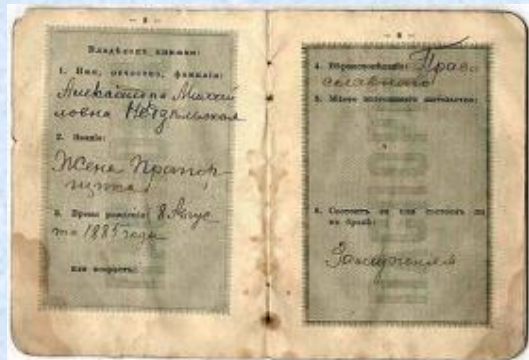 — 2 —
Владѣлецъ книжки:
1. Имя, отчество, фамилія:
Михай
ловна
2. Званіе:
Жена Прапор-
щика
3. Время рожденія: 8 Авгус
та 1885 года
или возрастъ:
4. Вѣроисповѣданіе: Право
славного
5. Мѣсто постояннаго жительства:
6. Состоитъ ли или состоялъ ли
въ бракѣ:
Замужняя